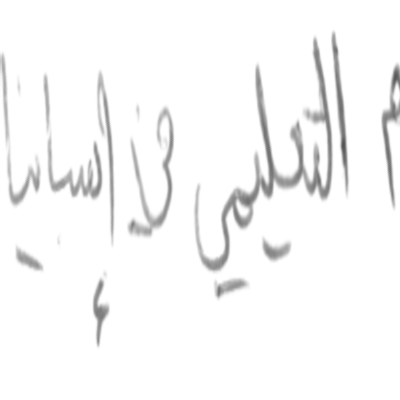 م التعليمي في إسبانيا